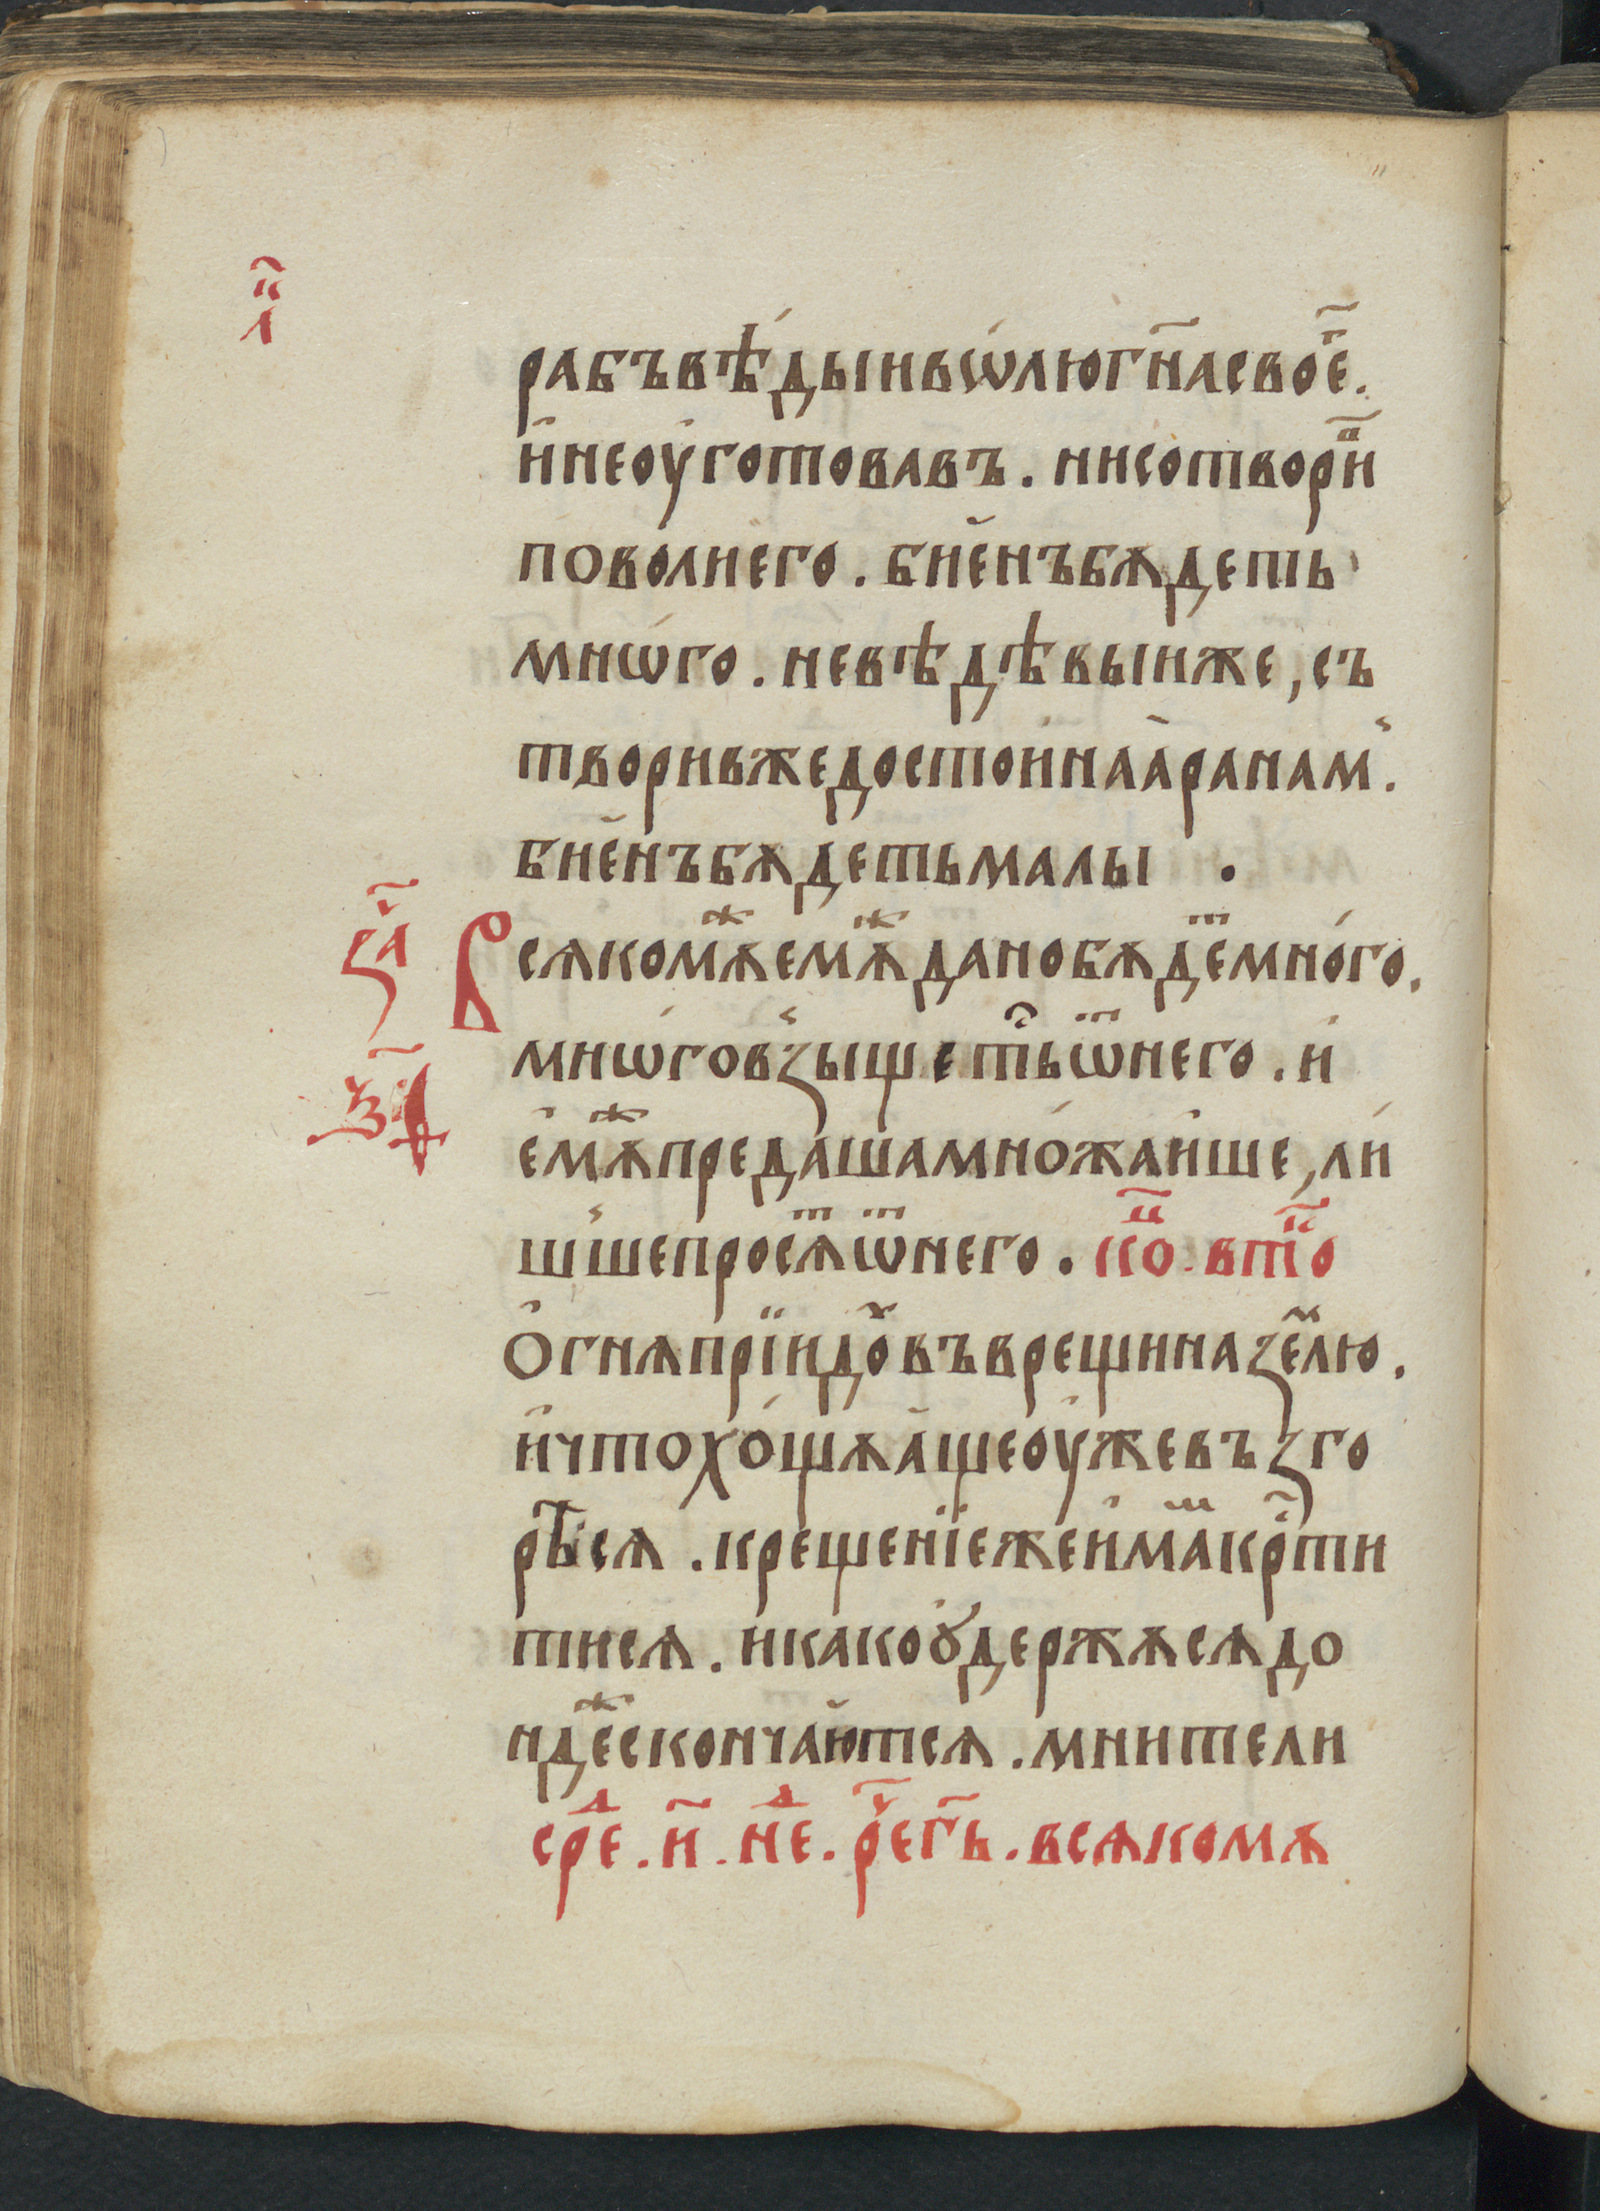 л҃і
рабъвѣ́дыивѡ́люгн҃асвоеⷢ҇.
и҆неоу҆готовавъ. нисотвориⷡ҇
поволиего. бие҆нъбѫдеть
мнѡ́го. невѣдѣвыиже, съ
творивжедостои҆наа҆ранам.
бие҆нъбѫдетьмалы .
за҃ч Всѧкомѫⷤемѫⷤданобѫдеⷮмно́го.
мнѡ́говзыщетьѿнего. и҆
е҆мѫⷤпредашамно́жаи҆ше, ли́
шшепросѧⷮѿнего. коⷰ҇. втоⷬ҇
О҆гнѧпрїидоⷯвъврещиназеⷨлю.
и҆чтохо́щѫа҆щеоу҆жевъзго
рѣсѧ. крещенїежеи҆маⷨкрⷭ҇ти
тисѧ. икакоꙋ҆держѫсѧдо
ндеⷤскончаютсѧ. мнители
среⷣ. и҃. неⷣ. реⷱ҇гь. всѧкомѫ